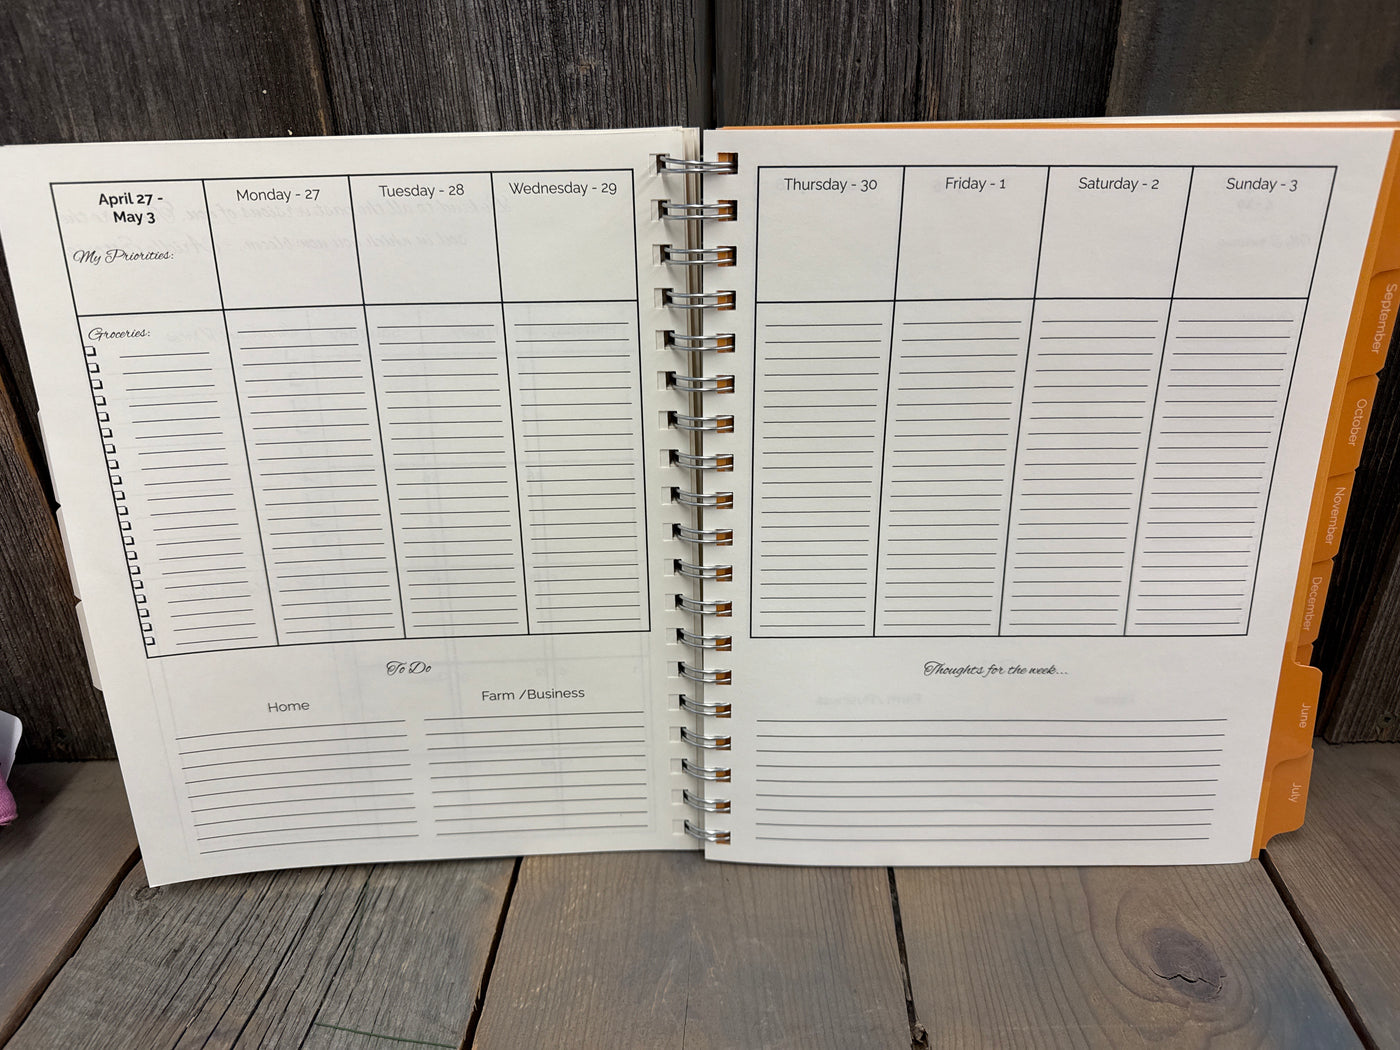 April 27 -
May 3
My Priorities:
Monday - 27
Tuesday - 28
Wednesday - 29
Groceries:
To Do
Home
Farm /Business
Thursday - 30
Friday - 1
Saturday - 2
Sunday - 3
Thoughts for the week...
September
October
November
December
June
July